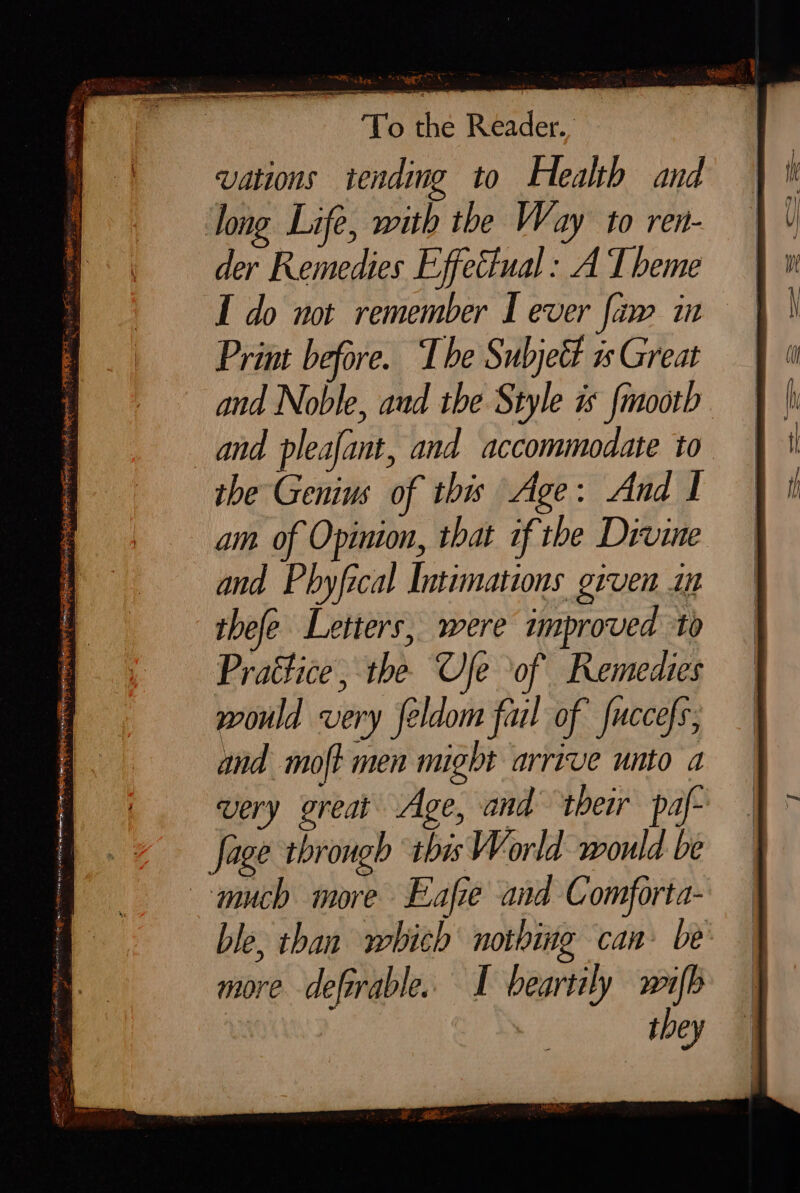 To the Reader.
vations tending to Health and
long Life, with the Way to ren-
der Remedies Effectual: A Theme
I do not remember I ever ſaw in
Print before. The Subject is Great
and Noble, and the Style is ſmooth
and pleaſant, and accommodate to
the Genius of this Age: And I
am of Opinion, that if the Divine
and Phyſical Intimations given in
theſe Letters, were improved to
Practice, the Uſe of Remedies
would very ſeldom fail of ſucceſs;
and moſt men might arrive unto a
very great Age, and their paſ-
ſage through this World would be
much more Eaſie and Comforta-
ble, than which nothing can be
more deſirable. I heartily wiſh
they